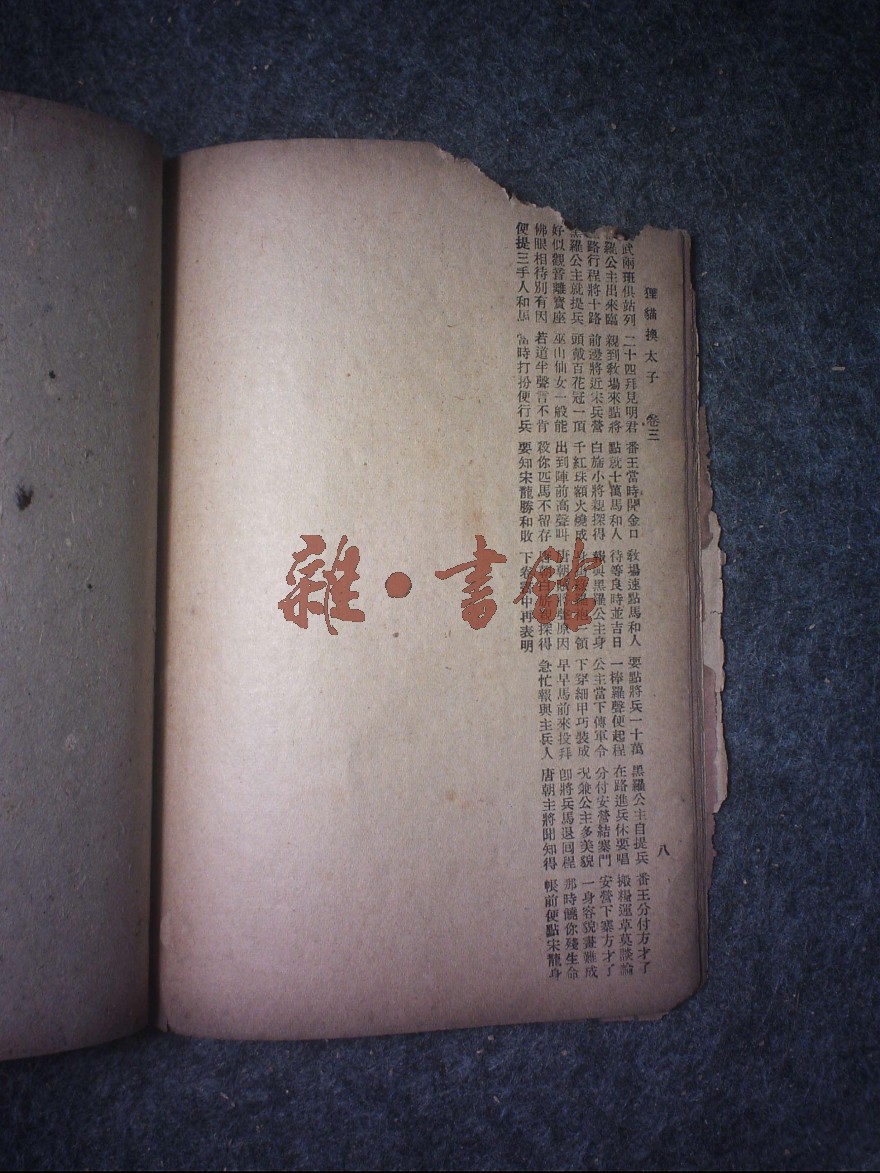 狸貓換太子 卷三 八
武兩班俱站列 二十四拜見明君 番王當時開金口 敎場速點馬和人 要點將兵一十萬 黑羅公主自提兵 番王分付方才了
羅公主出來臨 親到敎場來點將 點就十萬馬和人 待等良時並吉日 一棒羅聲便起程 在路進兵休要唱 搬糧運草莫談論
路行程將十路 前邊將近宋兵營 白旂小將親探得 報與黑羅公主身 公主當下傳軍令 分付安營結寨門 安營下寨方才了
黑羅公主就提兵 頭戴百花冠一頂 千紅珠額火燒成 身一領 下穿細甲巧裝成 况兼公主多美貌 一身容貌畫難成
好似觀音離寶座 巫山仙女一般能 出到陣前高聲叫 唐朝原因 早早馬前來投拜 卽將兵馬退回程 那時饒你殘生命
佛眼相待別有因 若道半聲言不肯 殺你匹馬不留存 探得 急忙報與主兵人 唐朝主將聞知得 帳前便點宋龍身
便提三手人和馬 當時打扮便行兵 要知宋龍勝和敗 下卷書中再表明
雜·書館